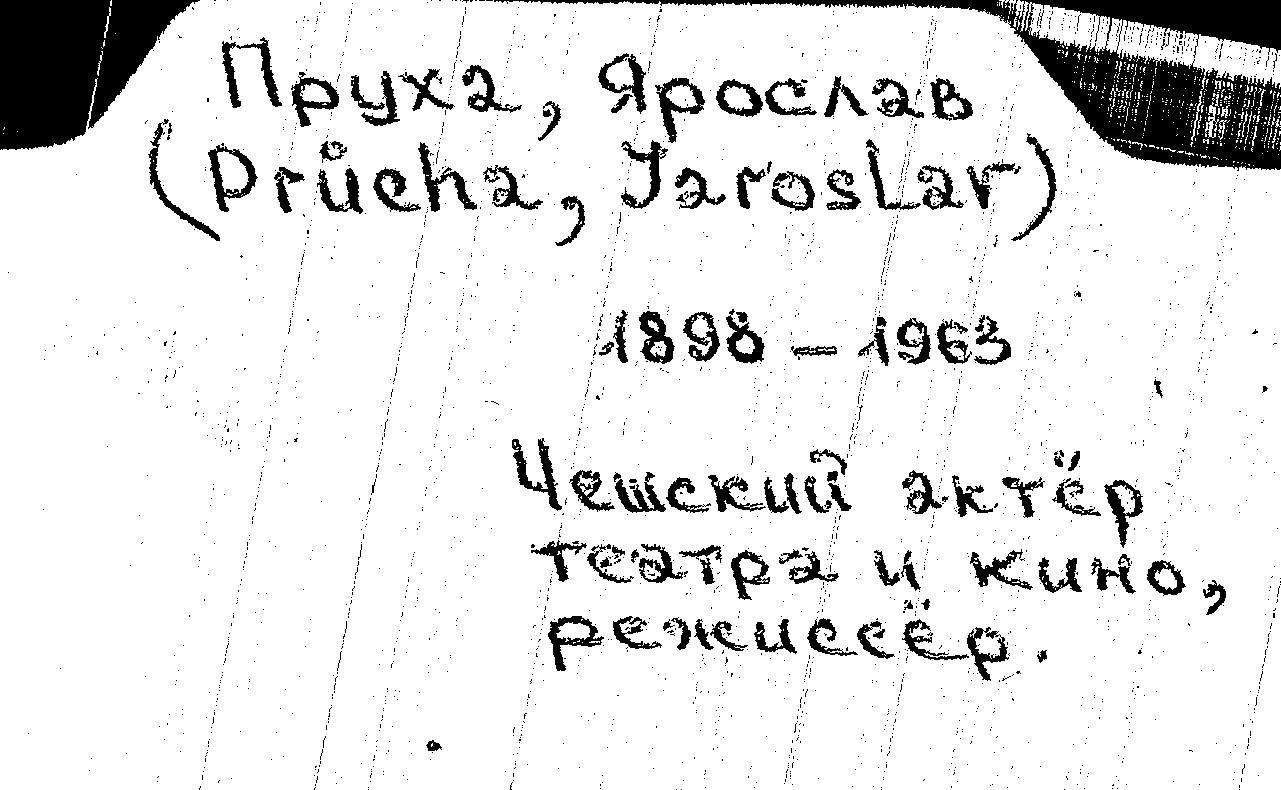 Пруха, Ярослав
(Průcha, Jaroslav)
1898 – 1963
Чешский актёр
театра и кино,
режиссёр.